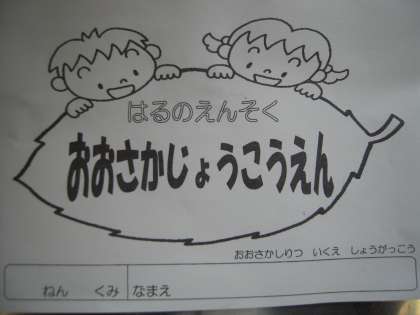 はるのえんそく
おおさかじょうこうえん
おおさかしりつ いくえ しょうがっこう
ねん くみ なまえ